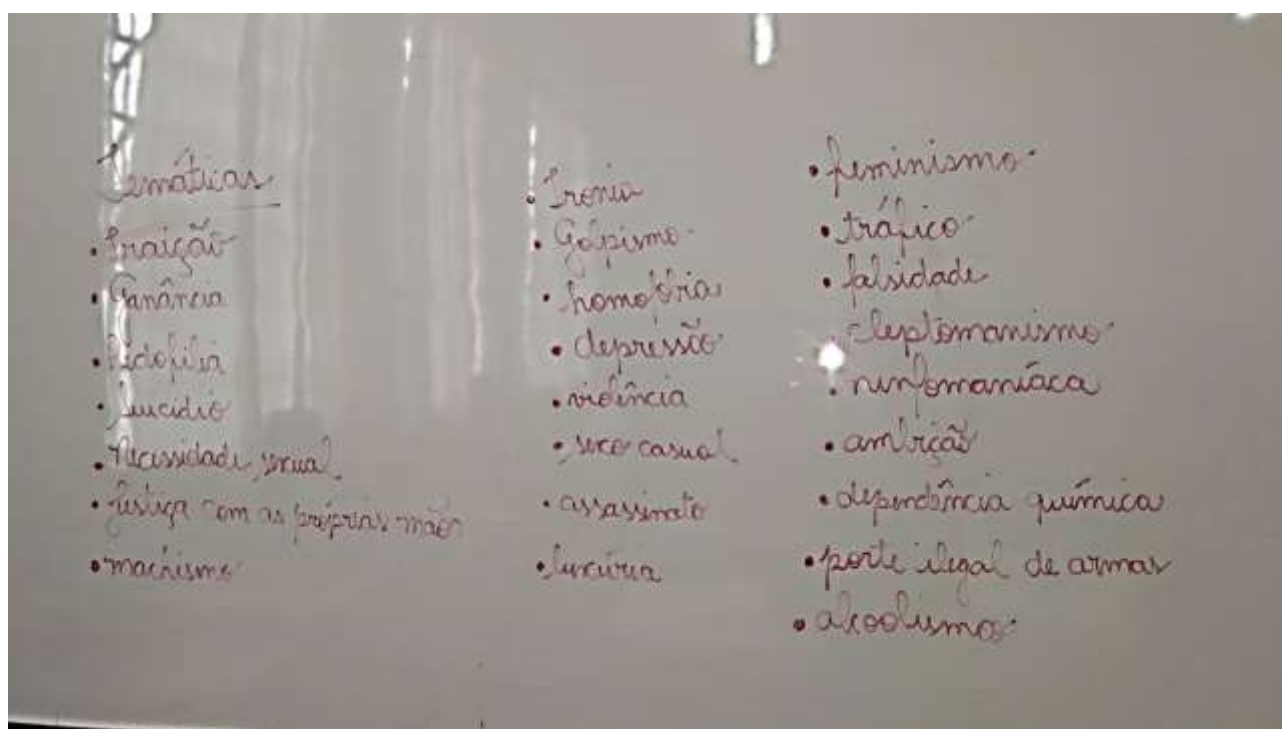 Temáticas
• Traição
• Ganância
• Pedofilia
• Suicídio
• Necessidade sexual
• Justiça com as próprias mãos
• machismo
• Ironia
• Golpismo
• homofobia
• depressão
• violência
• sexo casual
• assassinato
• luxúria
• feminismo
• tráfico
• falsidade
• cleptomanismo
• ninfomaníaca
• ambição
• dependência química
• porte ilegal de armas
• alcoolismo